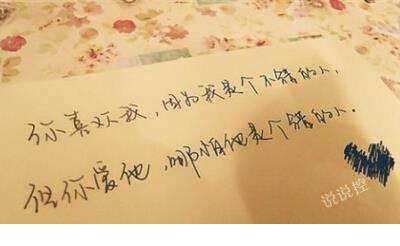 你喜欢我,因为我是个不错的人,
但你爱他,哪怕他是个错的人.
说说控